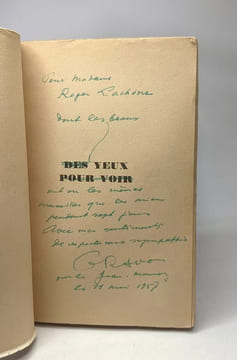 Pour Madame
Roger Lachôre
dont les beaux
DES YEUX
POUR VOIR
ont vu les mêmes
merveilles que les miens
pendant sept jours
Avec mes sentiments
de respectueuse sympathie
le 21 mai 1957